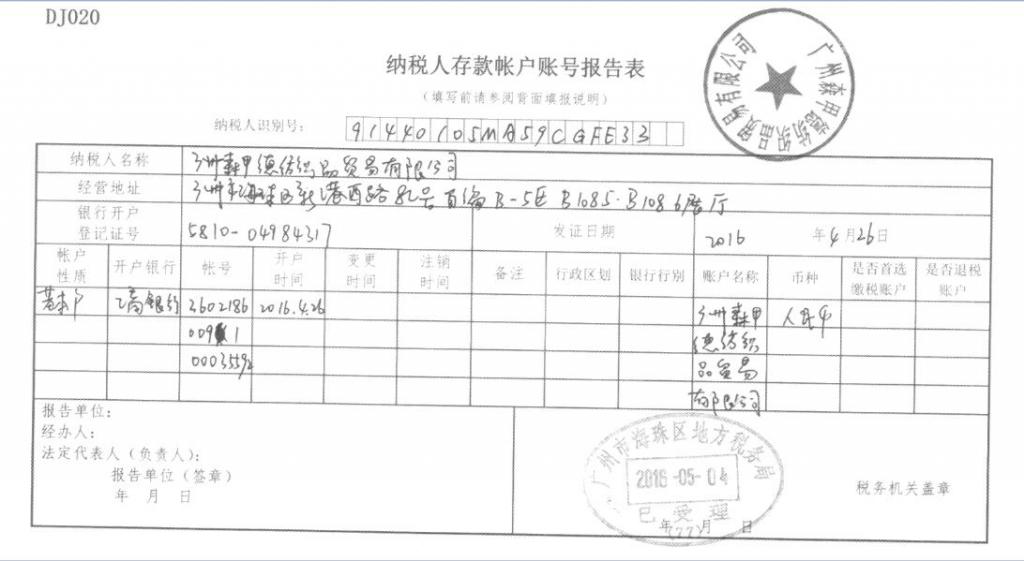 DJ020
纳税人存款帐户账号报告表
(填写前请参阅背面填报说明)
纳税人识别号: 91440105MA59CGFE33
纳税人名称 广州森甲德纺织品贸易有限公司
经营地址 广州市海珠区新港西路82号首编B-5区B1085·B1086展厅
银行开户登记证号 5810-04984317 发证日期 2016年4月26日
帐户性质 开户银行 帐号 开户时间 变更时间 注销时间 备注 行政区划 银行行别 账户名称 币种 是否首选缴税账户 是否退税账户
基本户 工商银行 3602186 2016.4.26 广州森甲 人民币
009 1 德纺织
0003559 品贸易
有限公司
报告单位:
经办人:
法定代表人(负责人):
报告单位(签章)
年 月 日
税务机关盖章
年 月 日
广州森甲德纺织品贸易有限公司
广州市海珠区地方税务局
2016-05-04
已受理
(77)